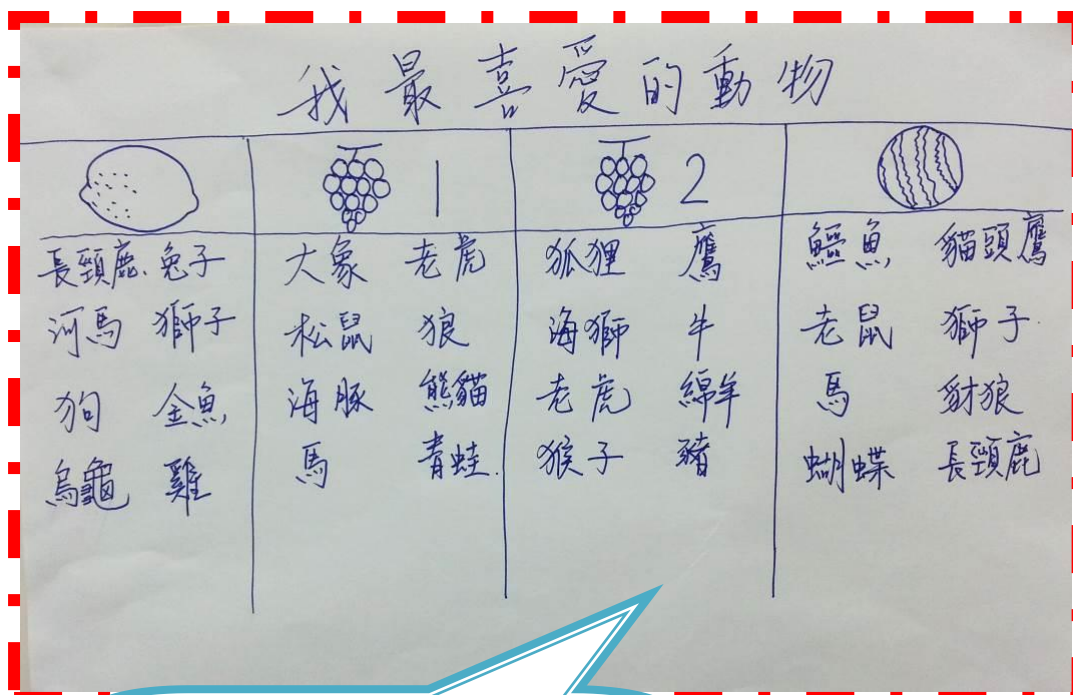 我最喜愛的動物
1 2
長頸鹿 兔子 大象 老虎 狐狸 鷹 鱷魚 貓頭鷹
河馬 獅子 松鼠 狼 海獅 牛 老鼠 獅子
狗 金魚 海豚 熊貓 老虎 綿羊 馬 豺狼
烏龜 雞 馬 青蛙 猴子 豬 蝴蝶 長頸鹿